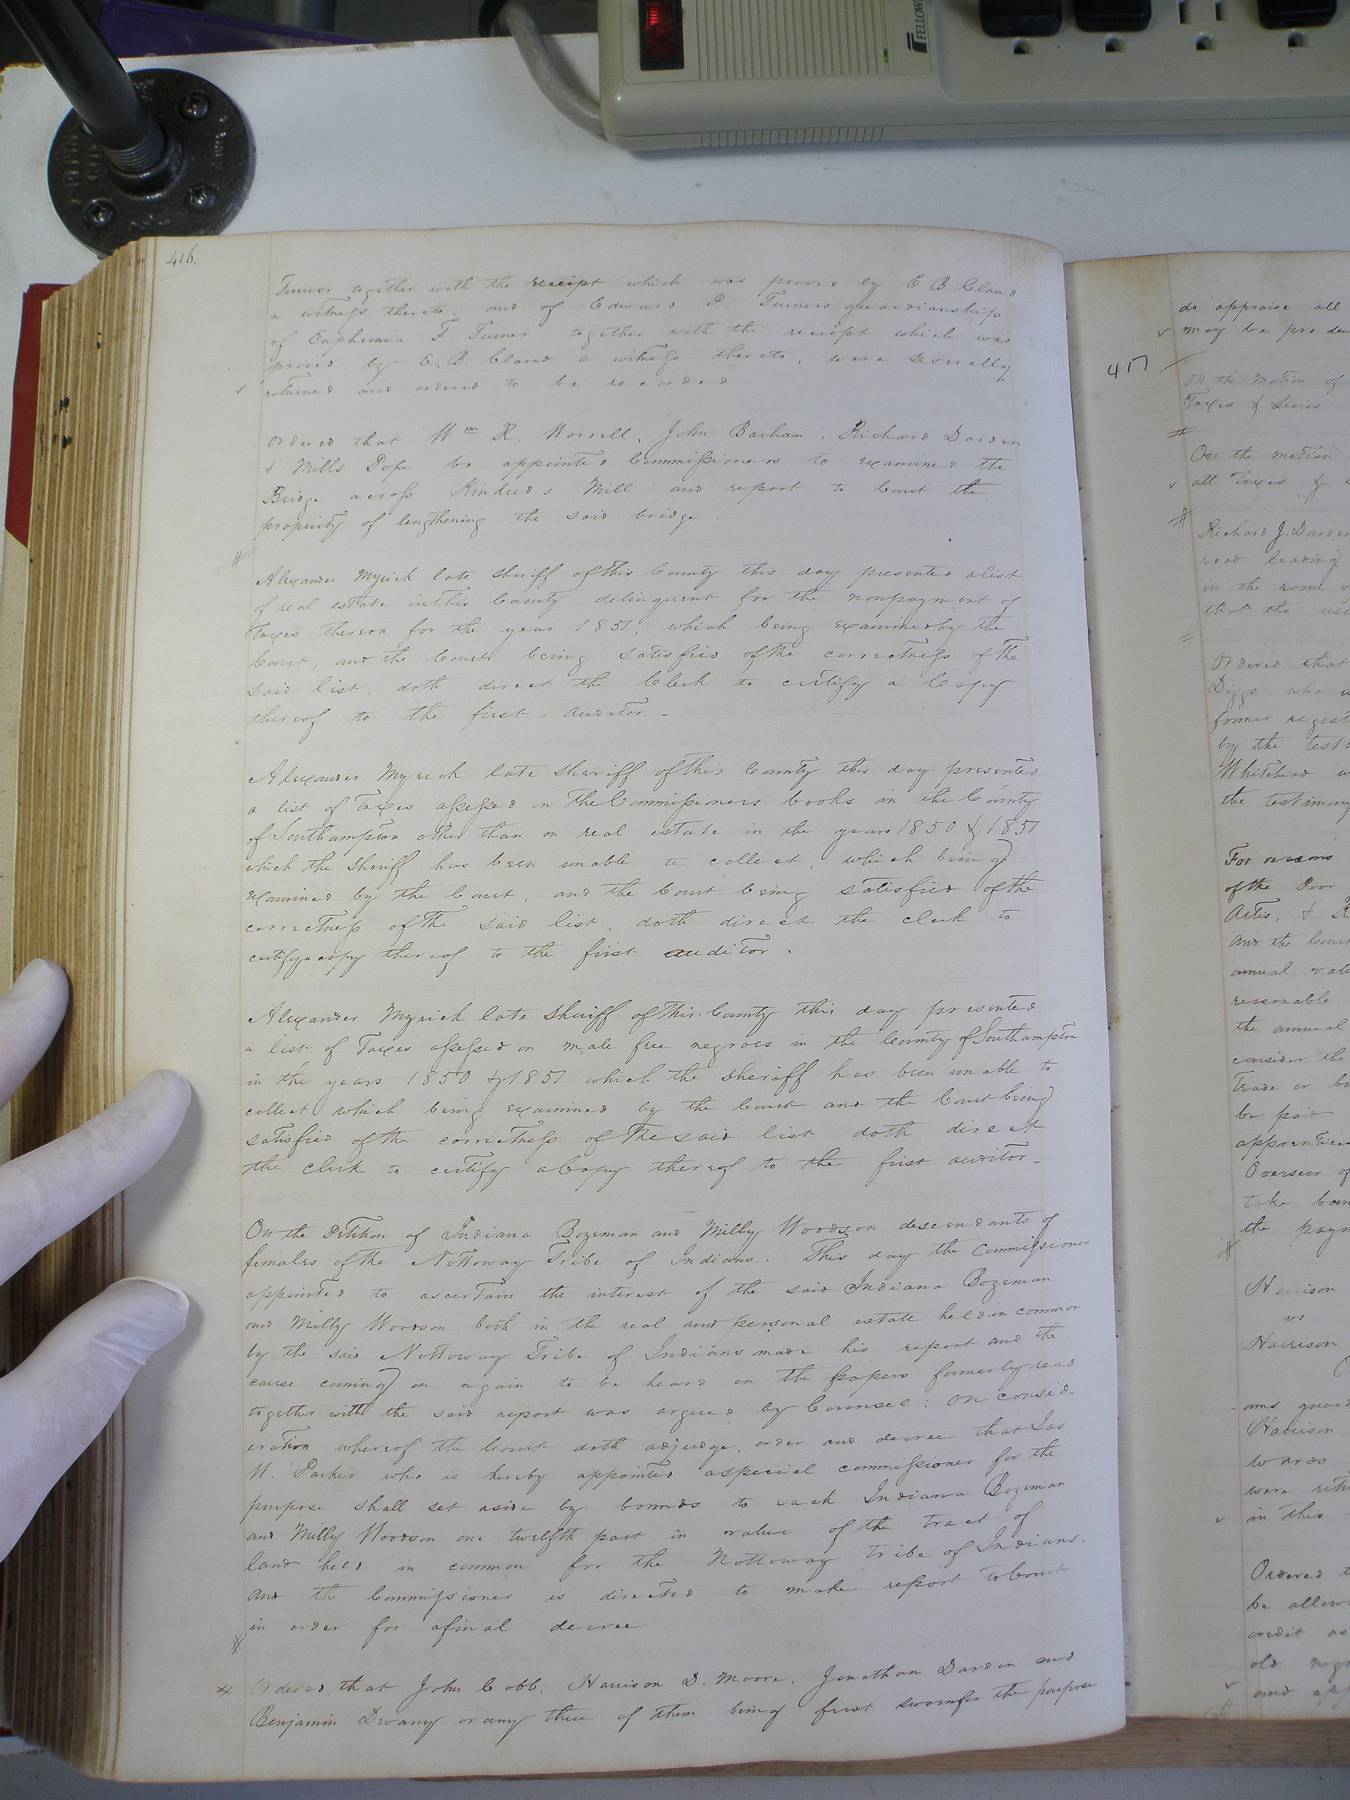 416.
Turner together with the receipt which was proved by E B. Claud
a witness thereto. and of Edward P. Turners guardianship
of Euphemia F. Turner together with the receipt which was
proved by E. B. Claud a witness thereto, were severally
returned and ordered to be recorded
Ordered that Wm R. Worrell, John Barham, Richard Darden
& Mills Pope be appointed Commissioners to examined the
Bridge across Kindred's Mill and report to Court the
propriety of lengthening the said bridge.
Alexander Myrick late Sheriff of this County this day presented a list
of real estate in this County delinquent for the nonpayment of
Taxes thereon for the year 1851, which being examined by the
Court, and the Court being satisfied of the correctness of the
said list, doth direct the Clerk to certify a Copy
thereof to the first Auditor -
Alexander Myrick late Sheriff of this County this day presented
a list of Taxes assessed on the Commissioners books in the County
of Southampton other than on real estate in the years 1850 & 1851
which the Sheriff has been unable to collect, which being
examined by the Court, and the Court being satisfied of the
correctness of the said list, doth direct the clerk to
certify a copy thereof to the first auditor.
Alexander Myrick late Sheriff of this County this day presented
a list of Taxes assessed on male free negroes in the County of Southampton
in the years 1850 & 1851 which the Sheriff has been unable to
collect which being examined by the Court and the Court being
satisfied of the correctness of the said list doth direct
the clerk to certify a Copy thereof to the first auditor -
On the Petition of Indiana Bozeman and Milly Woodson descendants of
females of the Nottoway Tribe of Indians. This day the Commissioner
appointed to ascertain the interest of the said Indiana Bozeman
and Milly Woodson both in the real and personal estate held in common
by the said Nottoway Tribe of Indians made his report and the
cause coming on again to be heard on the papers formerly read
together with the said report was argued by Counsel: On consid-
eration whereof the Court doth adjudge, order and decree that Jas
W. Parker who is hereby appointed a special commissioner for the
purpose shall set aside by bounds to each Indiana Bozeman
and Milly Woodson one twelfth part in value of the tract of
land held in common for the Nottoway tribe of Indians.
And the Commissioner is directed to make report to Court
in order for a final decree
Ordered that John Cobb, Harrison D. Moore, Jonathan Darden and
Benjamin Devany or any three of them being first sworn for the purpose
417
do appraise all
may be produ
On the Motion of
Taxes & Levies
On the motion
all Taxes &
Richard J. Darden
road leading
in the room o
that the usu
Ordered that
Diggs who w
former regist
by the testi
Whitehead w
the testimony
For reasons
of the Poor
Artis, &
and the Court
annual valu
reasonable
the annual
consider the
Trade or bu
be paid
apprentice
Overseer of
take bon
the paym
Harrison
vs
Harrison
ams guard
Harrison
wards
were retu
in this
Ordered t
be allow
credit as
old negr
and app
FELLOWE